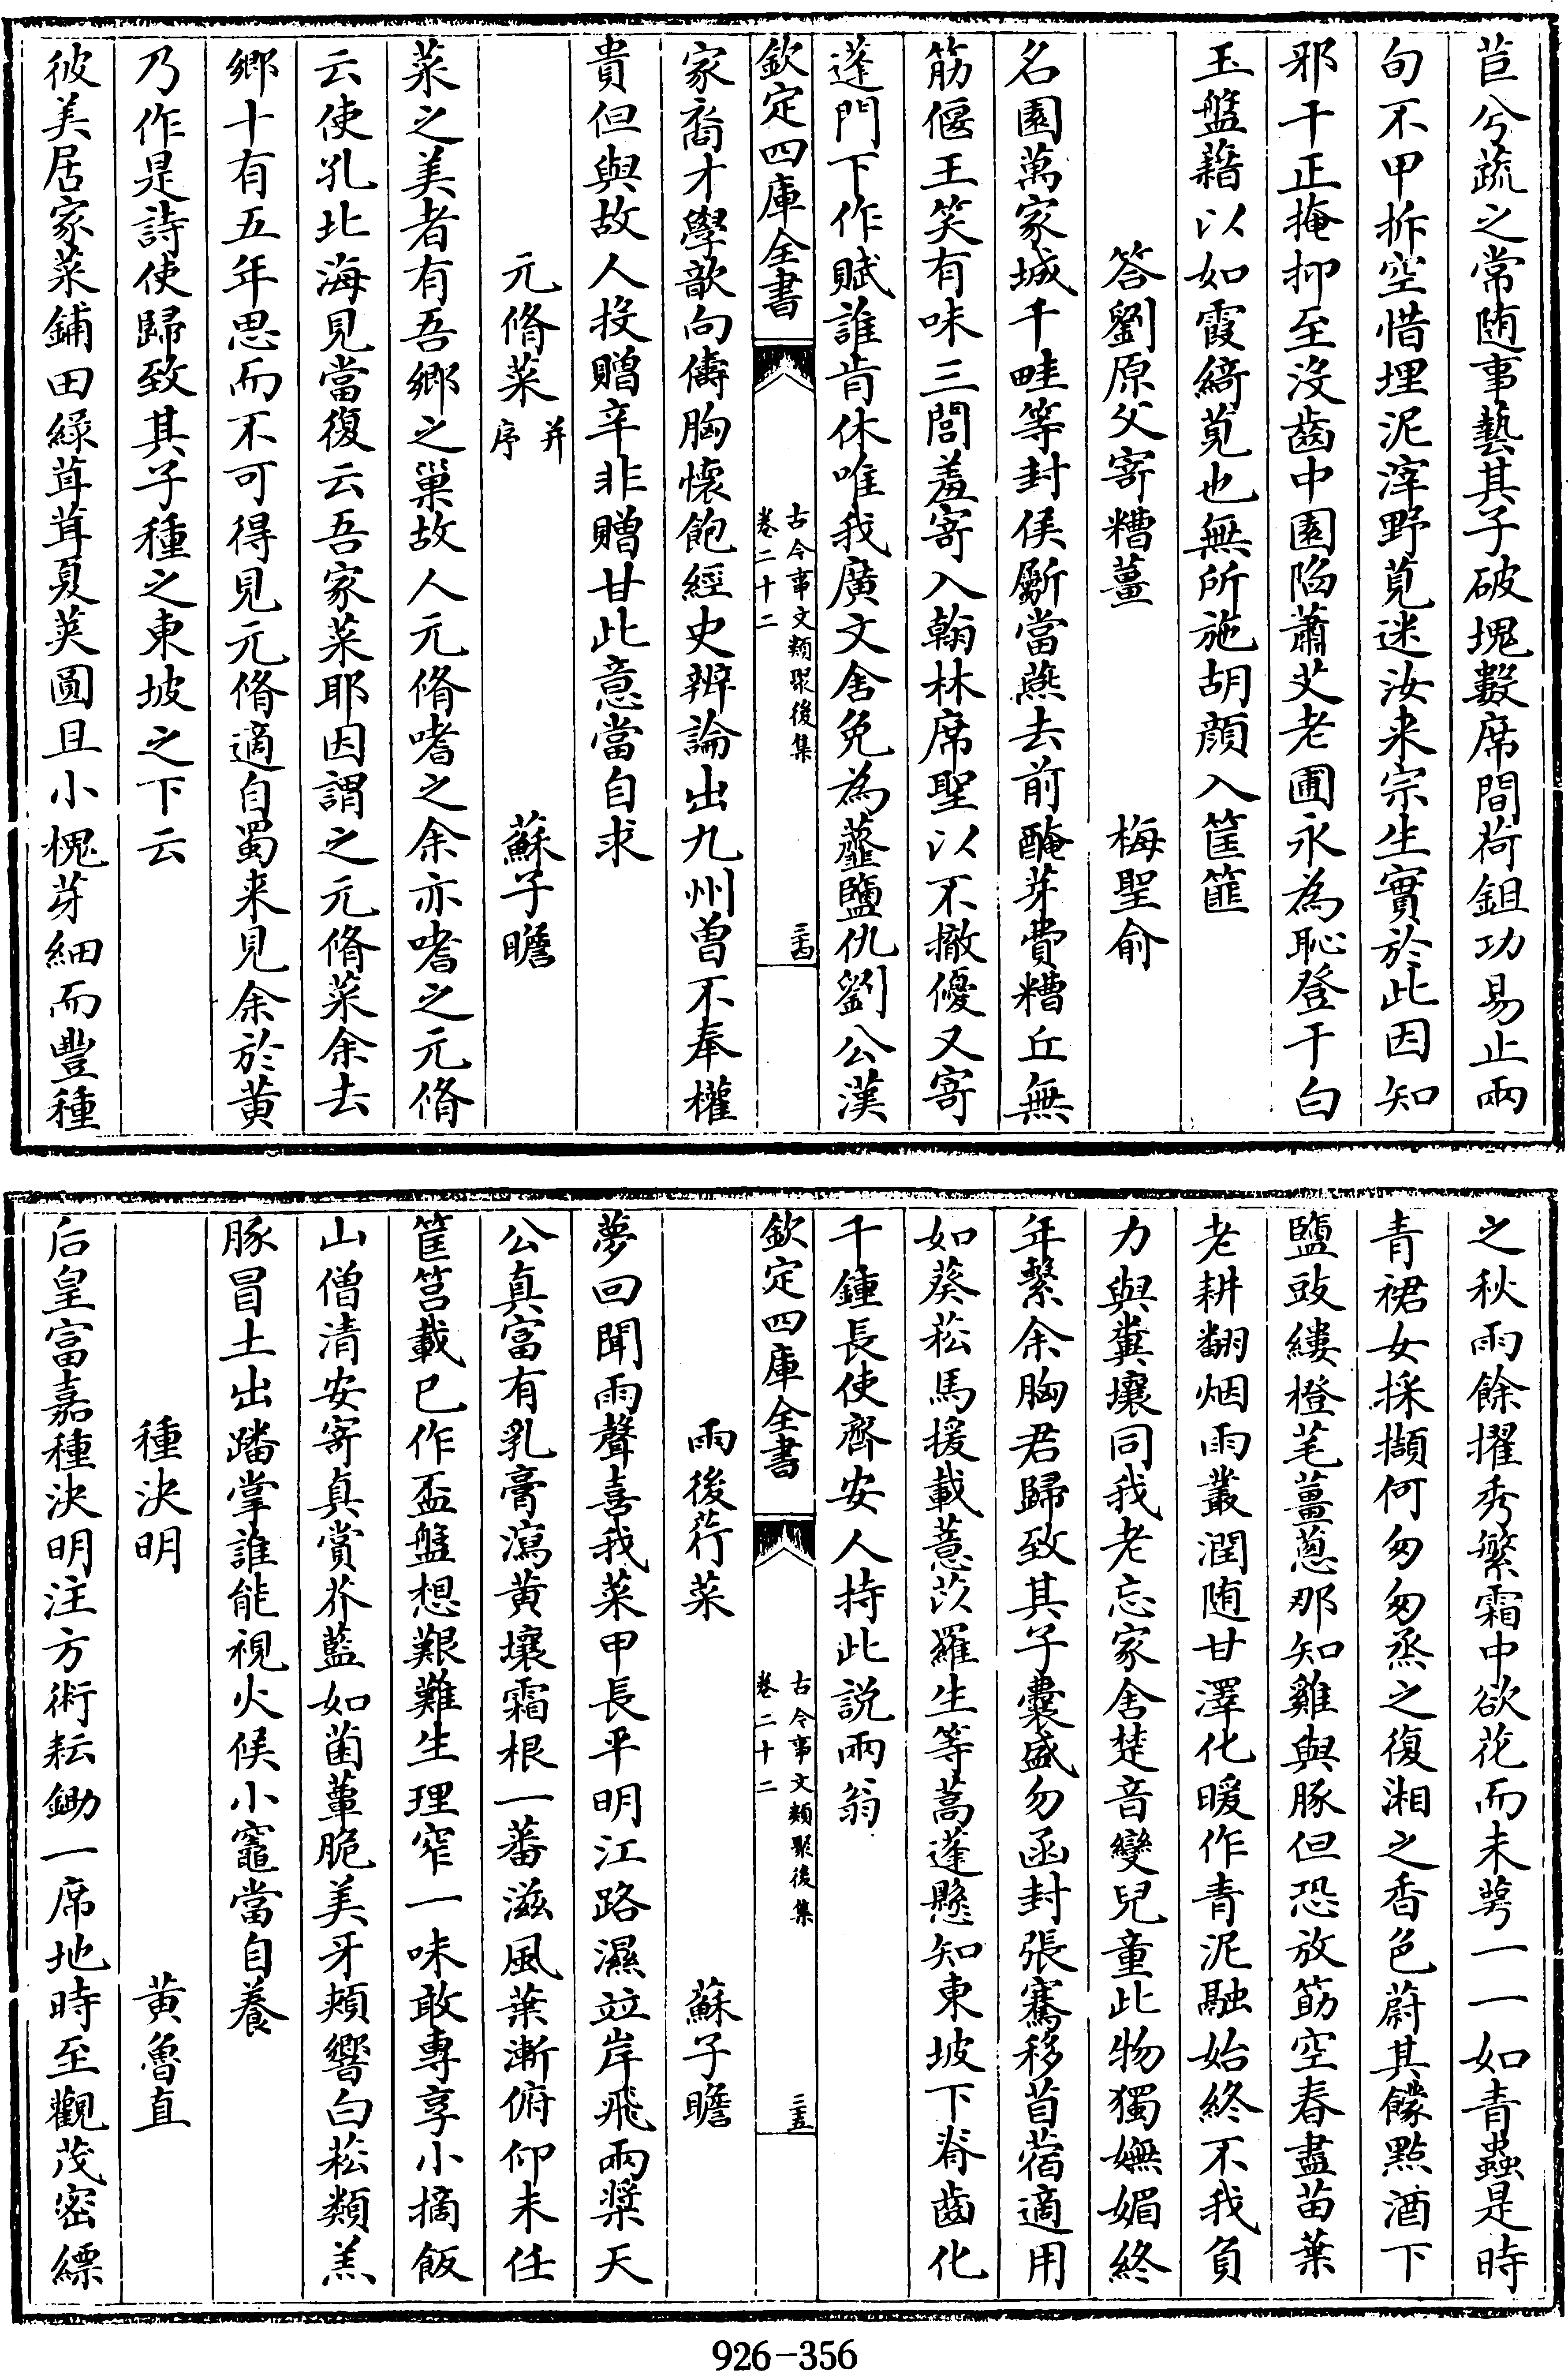 苣兮蔬之常随事藝其子破塊數席間荷鉏功易止兩
旬不甲拆空惜埋泥滓野莧迷汝来宗生實於此因知
邪干正掩抑至沒齒中園陷蕭艾老圃永為恥登于白
玉盤藉以如霞綺莧也無所施胡顔入筐篚
答劉原父寄糟薑 梅聖俞
名園萬家城千畦等封侯斸當燕去前醃芽費糟丘無
筋偃王笑有味三閭羞寄入翰林席聖以不撤優又寄
蓬門下作賦誰肯休唯我廣文舍免為虀鹽仇劉公漢
欽定四庫全書 古今事文類聚後集 卷二十二 三四
家裔才學歆向儔胸懷飽經史辨論出九州曾不奉權
貴但與故人投贈辛非贈甘此意當自求
元脩菜并序 蘇子瞻
菜之美者有吾鄉之巢故人元脩嗜之余亦嗜之元脩
云使孔北海見當復云吾家菜耶因謂之元脩菜余去
鄉十有五年思而不可得見元脩適自蜀来見余於黄
乃作是詩使歸致其子種之東坡之下云
彼美居家菜鋪田緑茸茸夏莢圓且小槐芽細而豐種
之秋雨餘擢秀繁霜中欲花而未萼一一如青蟲是時
青裙女採擷何匆匆烝之復湘之香色蔚其饛點酒下
鹽豉縷橙芼薑蔥那知雞與豚但恐放筯空春盡苗葉
老耕翻烟雨叢潤随甘澤化暖作青泥融始終不我負
力與糞壤同我老忘家舍楚音變兒童此物獨嫵媚終
年繫余胸君歸致其子囊盛勿函封張騫移苜蓿適用
如葵菘馬援載薏苡羅生等蒿蓬懸知東坡下脊齒化
千鍾長使齊安人持此説兩翁
欽定四庫全書 古今事文類聚後集 卷二十二 三五
雨後荇菜 蘇子瞻
夢回聞雨聲喜我菜甲長平明江路濕竝岸飛兩槳天
公真富有乳膏瀉黄壤霜根一蕃滋風葉漸俯仰未任
筐筥載已作盃盤想艱難生理窄一味敢專享小摘飯
山僧清安寄真賞芥藍如菌蕈脆美牙頰響白菘類羔
豚冒土出蹯掌誰能視火候小竈當自養
種決明 黄魯直
后皇富嘉種決明注方術耘鋤一席地時至觀茂密縹
926-356